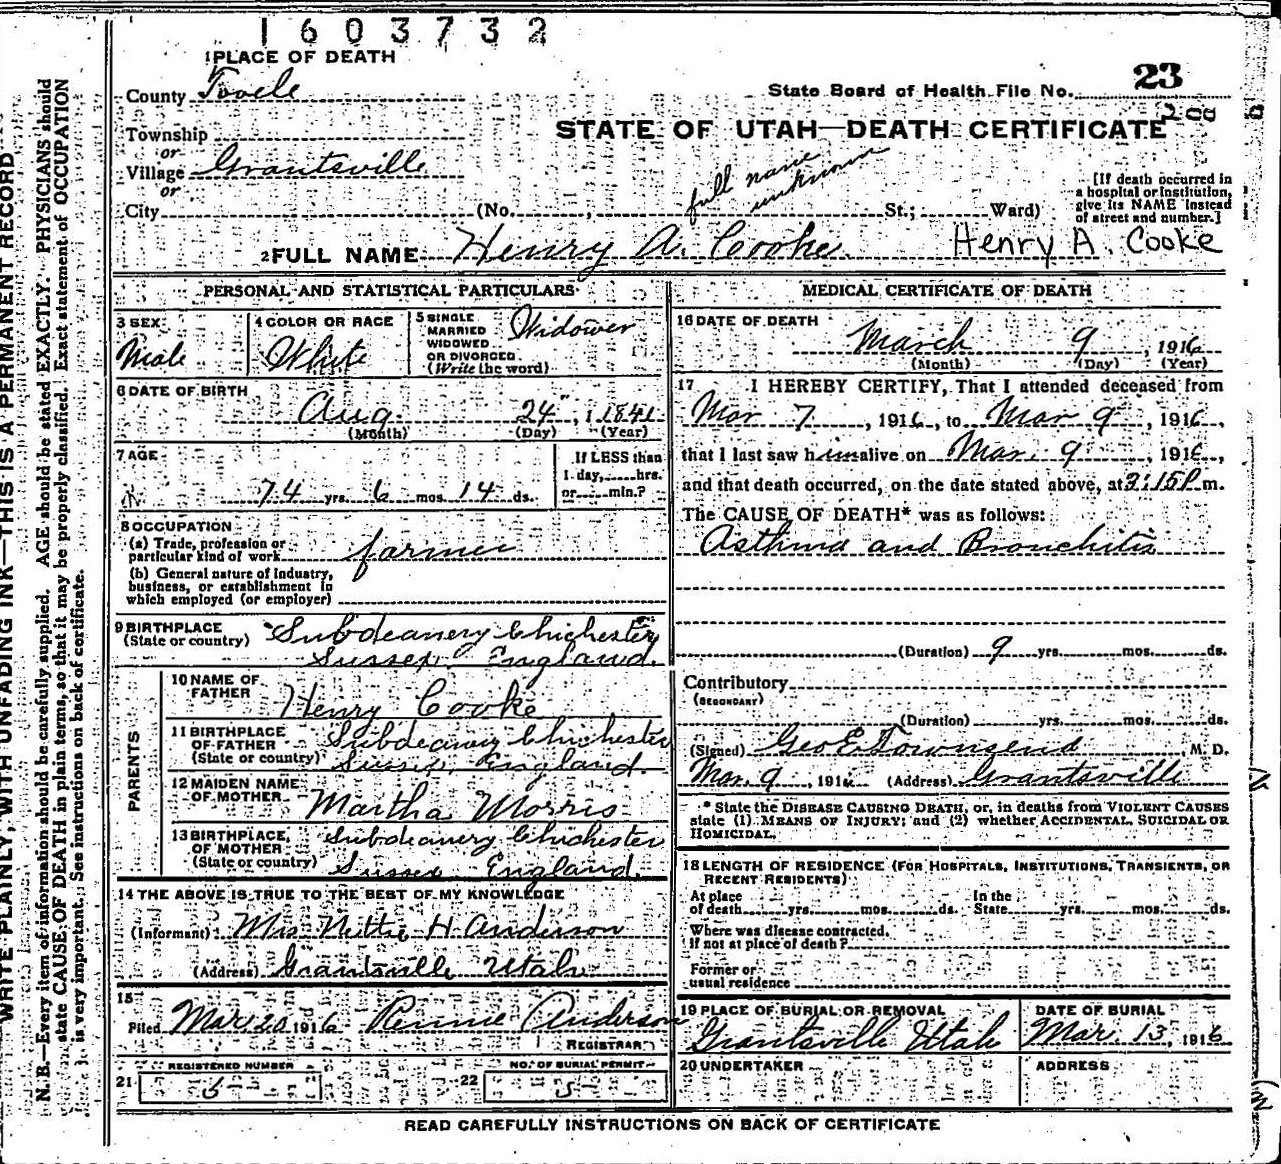 1603732
1 PLACE OF DEATH
23
County Tooele
State Board of Health File No.
200
Township
STATE OF UTAH—DEATH CERTIFICATE
or
Village Grantsville
full name
unknown
or
[If death occurred in
a hospital or institution,
give its NAME instead
of street and number.]
City (No. , St.; Ward)
2 FULL NAME Henry A. Cooke. Henry A. Cooke
PERSONAL AND STATISTICAL PARTICULARS
3 SEX
Male
4 COLOR OR RACE
White
5 SINGLE
MARRIED
WIDOWED
OR DIVORCED
(Write the word)
Widower
6 DATE OF BIRTH
Aug. 24, 1841
(Month) (Day) (Year)
7 AGE
74 yrs. 6 mos. 14 ds.
If LESS than
1 day, hrs.
or min.?
8 OCCUPATION
(a) Trade, profession or
particular kind of work farmer
(b) General nature of industry,
business, or establishment in
which employed (or employer)
9 BIRTHPLACE
(State or country)
Subdeanery Chichester
Sussex England.
PARENTS
10 NAME OF
FATHER
Henry Cooke
11 BIRTHPLACE
OF FATHER
(State or country)
Subdeanery Chichester
Sussex, England.
12 MAIDEN NAME
OF MOTHER
Martha Morris
13 BIRTHPLACE
OF MOTHER
(State or country)
Subdeanery Chichester
Sussex England.
14 THE ABOVE IS TRUE TO THE BEST OF MY KNOWLEDGE
(Informant) Mrs Nettie H Anderson
(Address) Grantsville Utah
15
Filed Mar. 20 1916 Rennie Anderson
REGISTRAR
21 REGISTERED NUMBER
6
22 NO. OF BURIAL PERMIT
5
MEDICAL CERTIFICATE OF DEATH
16 DATE OF DEATH
March 9, 1916
(Month) (Day) (Year)
17 I HEREBY CERTIFY, That I attended deceased from
Mar 7, 1916, to Mar 9, 1916,
that I last saw him alive on Mar. 9, 1916,
and that death occurred, on the date stated above, at 3:15 P. m.
The CAUSE OF DEATH* was as follows:
Asthma and Bronchitis
(Duration) 9 yrs. mos. ds.
Contributory
(SECONDARY)
(Duration) yrs. mos. ds.
(Signed) Geo E. Townsend, M. D.
Mar. 9, 1916 (Address) Grantsville
* State the DISEASE CAUSING DEATH, or, in deaths from VIOLENT CAUSES
state (1) MEANS OF INJURY; and (2) whether ACCIDENTAL, SUICIDAL OR
HOMICIDAL.
18 LENGTH OF RESIDENCE (FOR HOSPITALS, INSTITUTIONS, TRANSIENTS, OR
RECENT RESIDENTS)
At place
of death yrs. mos. ds.
In the
State yrs. mos. ds.
Where was disease contracted,
if not at place of death?
Former or
usual residence
19 PLACE OF BURIAL OR REMOVAL
Grantsville Utah
DATE OF BURIAL
Mar. 13, 1916
20 UNDERTAKER
ADDRESS
READ CAREFULLY INSTRUCTIONS ON BACK OF CERTIFICATE
WRITE PLAINLY, WITH UNFADING INK—THIS IS A PERMANENT RECORD
N. B.—Every item of information should be carefully supplied. AGE should be stated EXACTLY. PHYSICIANS should
state CAUSE OF DEATH in plain terms, so that it may be properly classified. Exact statement of OCCUPATION
is very important. See instructions on back of certificate.